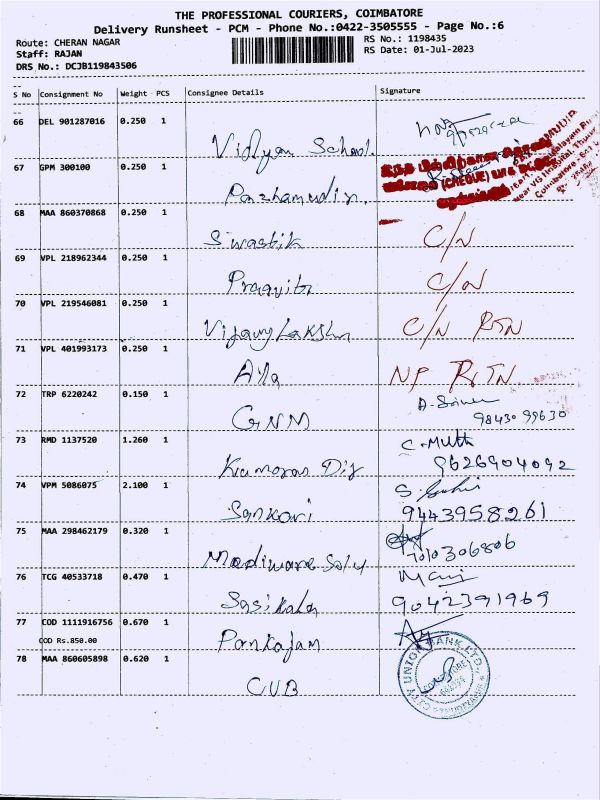 THE PROFESSIONAL COURIERS, COIMBATORE
Delivery Runsheet - PCM - Phone No.:0422-3505555 - Page No.:6
Route: CHERAN NAGAR RS No.: 1198435
Staff: RAJAN RS Date: 01-Jul-2023
DRS No.: DCJB119843506
S No Consignment No Weight PCS Consignee Details Signature
66 DEL 901287016 0.250 1
Vidyan School
67 GPM 300100 0.250 1
(CHEQUE)
68 MAA 860370868 0.250 1
Swastik C/N
69 VPL 218962344 0.250 1
C/N
70 VPL 219546081 0.250 1
C/N RTN
71 VPL 401993173 0.250 1
NP RTN
72 TRP 6220242 0.150 1
GNM 98430 99630
73 RMD 1137520 1.260 1
C. Muth
9626904092
74 VPM 5086075 2.100 1
Sankari 9443958261
75 MAA 298462179 0.320 1
7010306806
76 TCG 40533718 0.470 1
Sasikala 9042391969
77 COD 1111916756 0.670 1
COD Rs.850.00 Pankajam
78 MAA 860605898 0.620 1
CUB
CITY UNION BANK LTD.